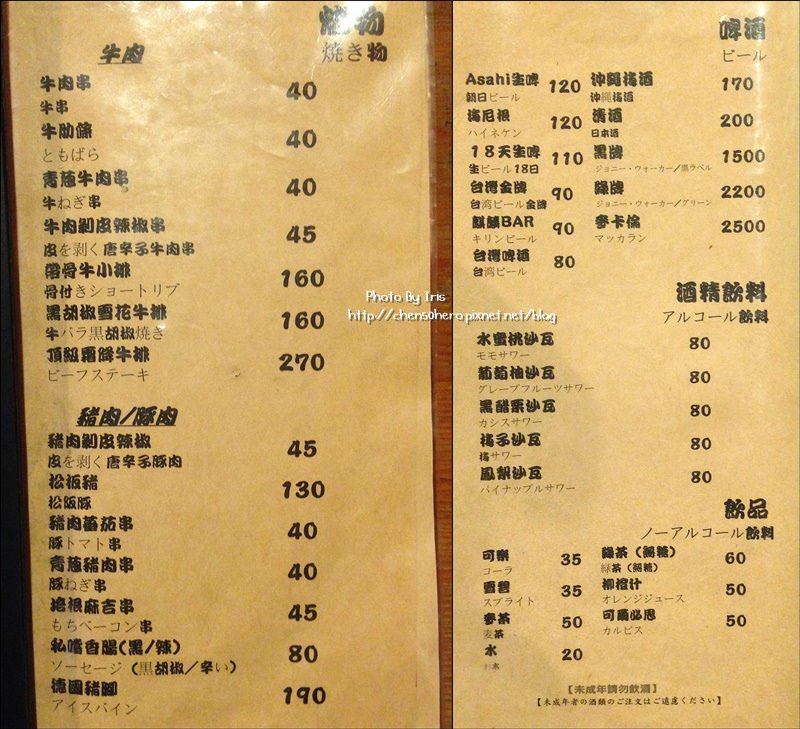 燒物
焼き物
牛肉
牛肉串 40
牛串
牛肋條 40
ともばら
青蔥牛肉串 40
牛ねぎ串
牛肉剝皮辣椒串 45
皮を剥く唐辛子牛肉串
帶骨牛小排 160
骨付きショートリブ
黑胡椒雪花牛排 160
牛バラ黒胡椒焼き
頂級霜降牛排 270
ビーフステーキ
豬肉/豚肉
豬肉剝皮辣椒 45
皮を剥く唐辛子豚肉
松板豬 130
松阪豚
豬肉蕃茄串 40
豚トマト串
青蔥豬肉串 40
豚ねぎ串
培根麻吉串 45
もちベーコン串
私嚐香腸(黑/辣) 80
ソーセージ (黒胡椒/辛い)
德國豬腳 190
アイスバイン
啤酒
ビール
Asahi生啤 120 沖繩梅酒 170
朝日ビール 沖縄梅酒
海尼根 120 清酒 200
ハイネケン 日本酒
18天生啤 110 黑牌 1500
生ビール18日 ジョニー・ウォーカー/黒ラベル
台灣金牌 90 綠牌 2200
台湾ビール金牌 ジョニー・ウォーカー/グリーン
麒麟BAR 90 麥卡倫 2500
キリンビール マッカラン
台灣啤酒 80
台湾ビール
酒精飲料
アルコール飲料
水蜜桃沙瓦 80
モモサワー
葡萄柚沙瓦 80
グレープフルーツサワー
黑醋栗沙瓦 80
カシスサワー
梅子沙瓦 80
梅サワー
鳳梨沙瓦 80
パイナップルサワー
飲品
ノーアルコール飲料
可樂 35 綠茶 (無糖) 60
コーラ 緑茶 (無糖)
雪碧 35 柳橙汁 50
スプライト オレンジジュース
麥茶 50 可爾必思 50
麦茶 カルピス
水 20
【未成年請勿飲酒】
【未成年者の酒類のご注文はご遠慮ください】
Photo By Iris
http://chensohero.pixnet.net/blog